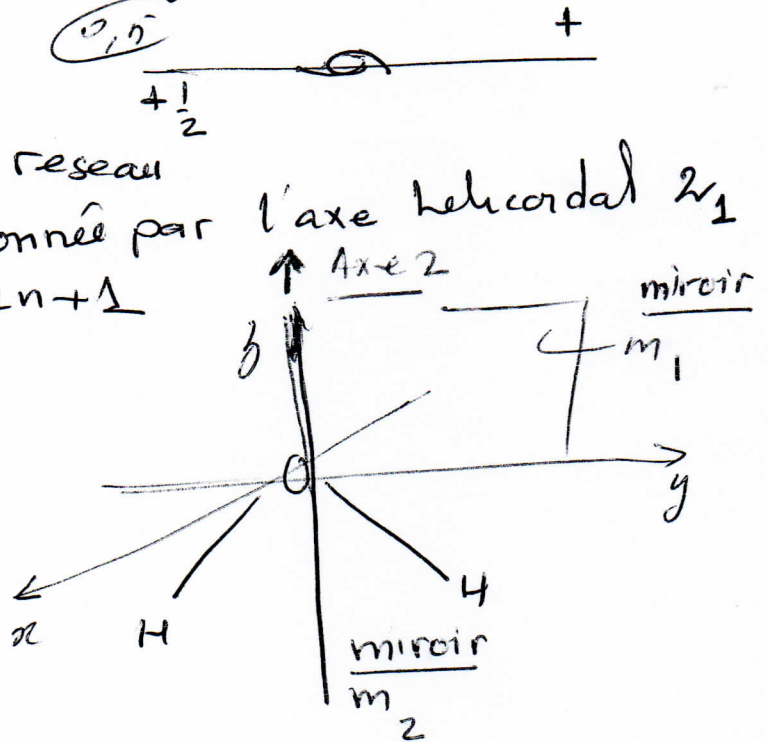 0,5
+
+ 1/2
reseau
onnée par l'axe helicoidal 2₁
2n+1
Axe 2
miroir
m₁
z
O
y
x
H
H
miroir
m₂